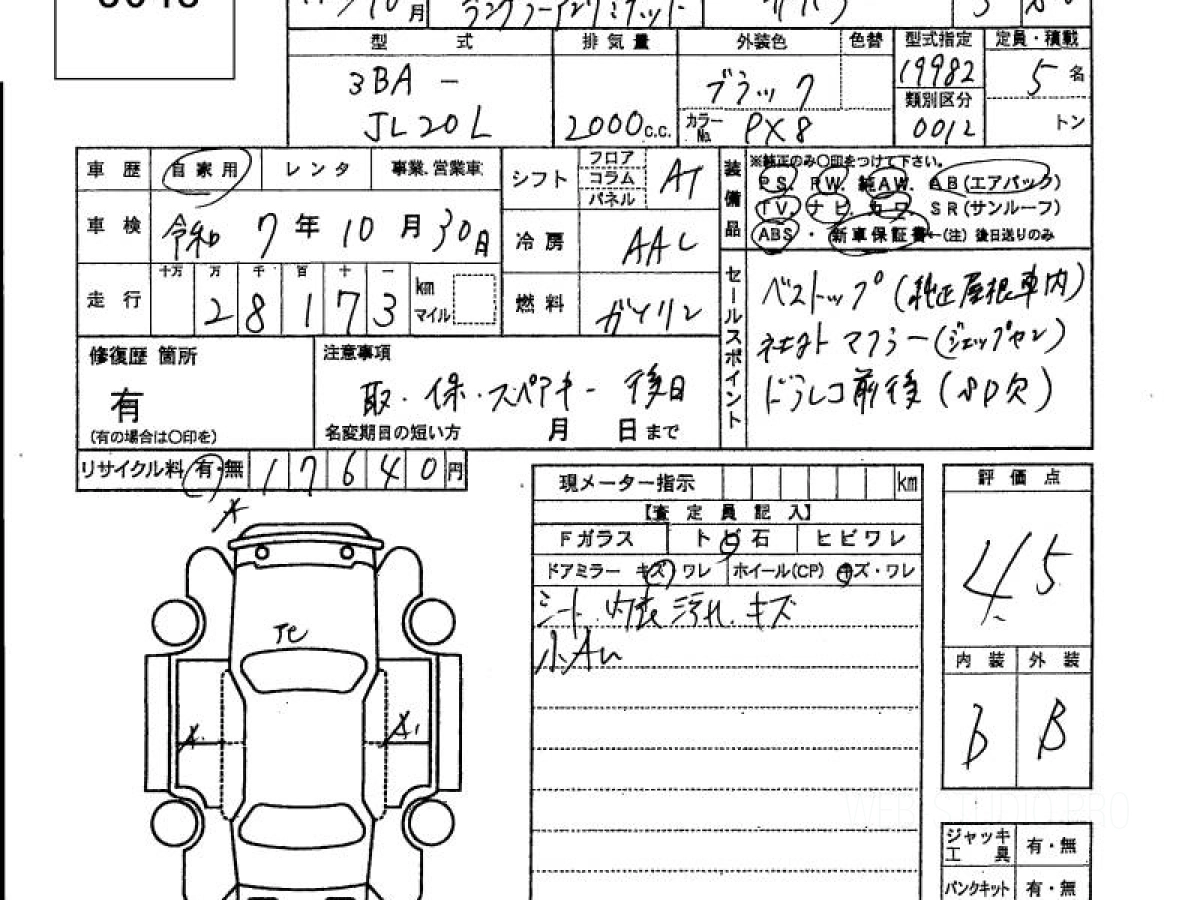 10月
型 式
排気量
外装色
色替
型式指定
定員・積載
3BA -
JL20L
2000 c.c.
ブラック
カラーNo. PX8
19982
類別区分
0012
5 名
トン
車歴 自家用 レンタ 事業、営業車
車検 令和 7年 10月 30日
走行 十万 万 千 百 十 一
2 8 1 7 3
km
マイル
シフト フロア コラム パネル AT
冷房 AAC
燃料 ガソリン
装備品
※純正のみ〇印をつけて下さい。
PS. PW. 純AW. AB(エアバック)
TV. ナビ. カワ SR(サンルーフ)
ABS ・ 新車保証書←(注) 後日送りのみ
セールスポイント
ベストップ(純正屋根車内)
社外マフラー(ジェップセン)
ドラレコ前後(SD欠)
修復歴 箇所
有
(有の場合は〇印を)
注意事項
取・保・スペアキー 後日
名変期日の短い方 月 日まで
リサイクル料 有・無 17640円
現メーター指示 km
【査定員記入】
Fガラス トビ石 ヒビワレ
ドアミラー キズ ワレ ホイール(CP) キズ・ワレ
シート、内張汚れ、キズ
小A
評価点
4.5
内装 外装
B
ジャッキ工具 有・無
パンクキット 有・無